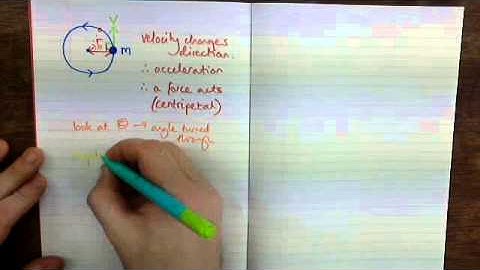 v
r
m
velocity changes
direction.
∴ acceleration
∴ a force acts
(centripetal)
look at θ → angle turned
through